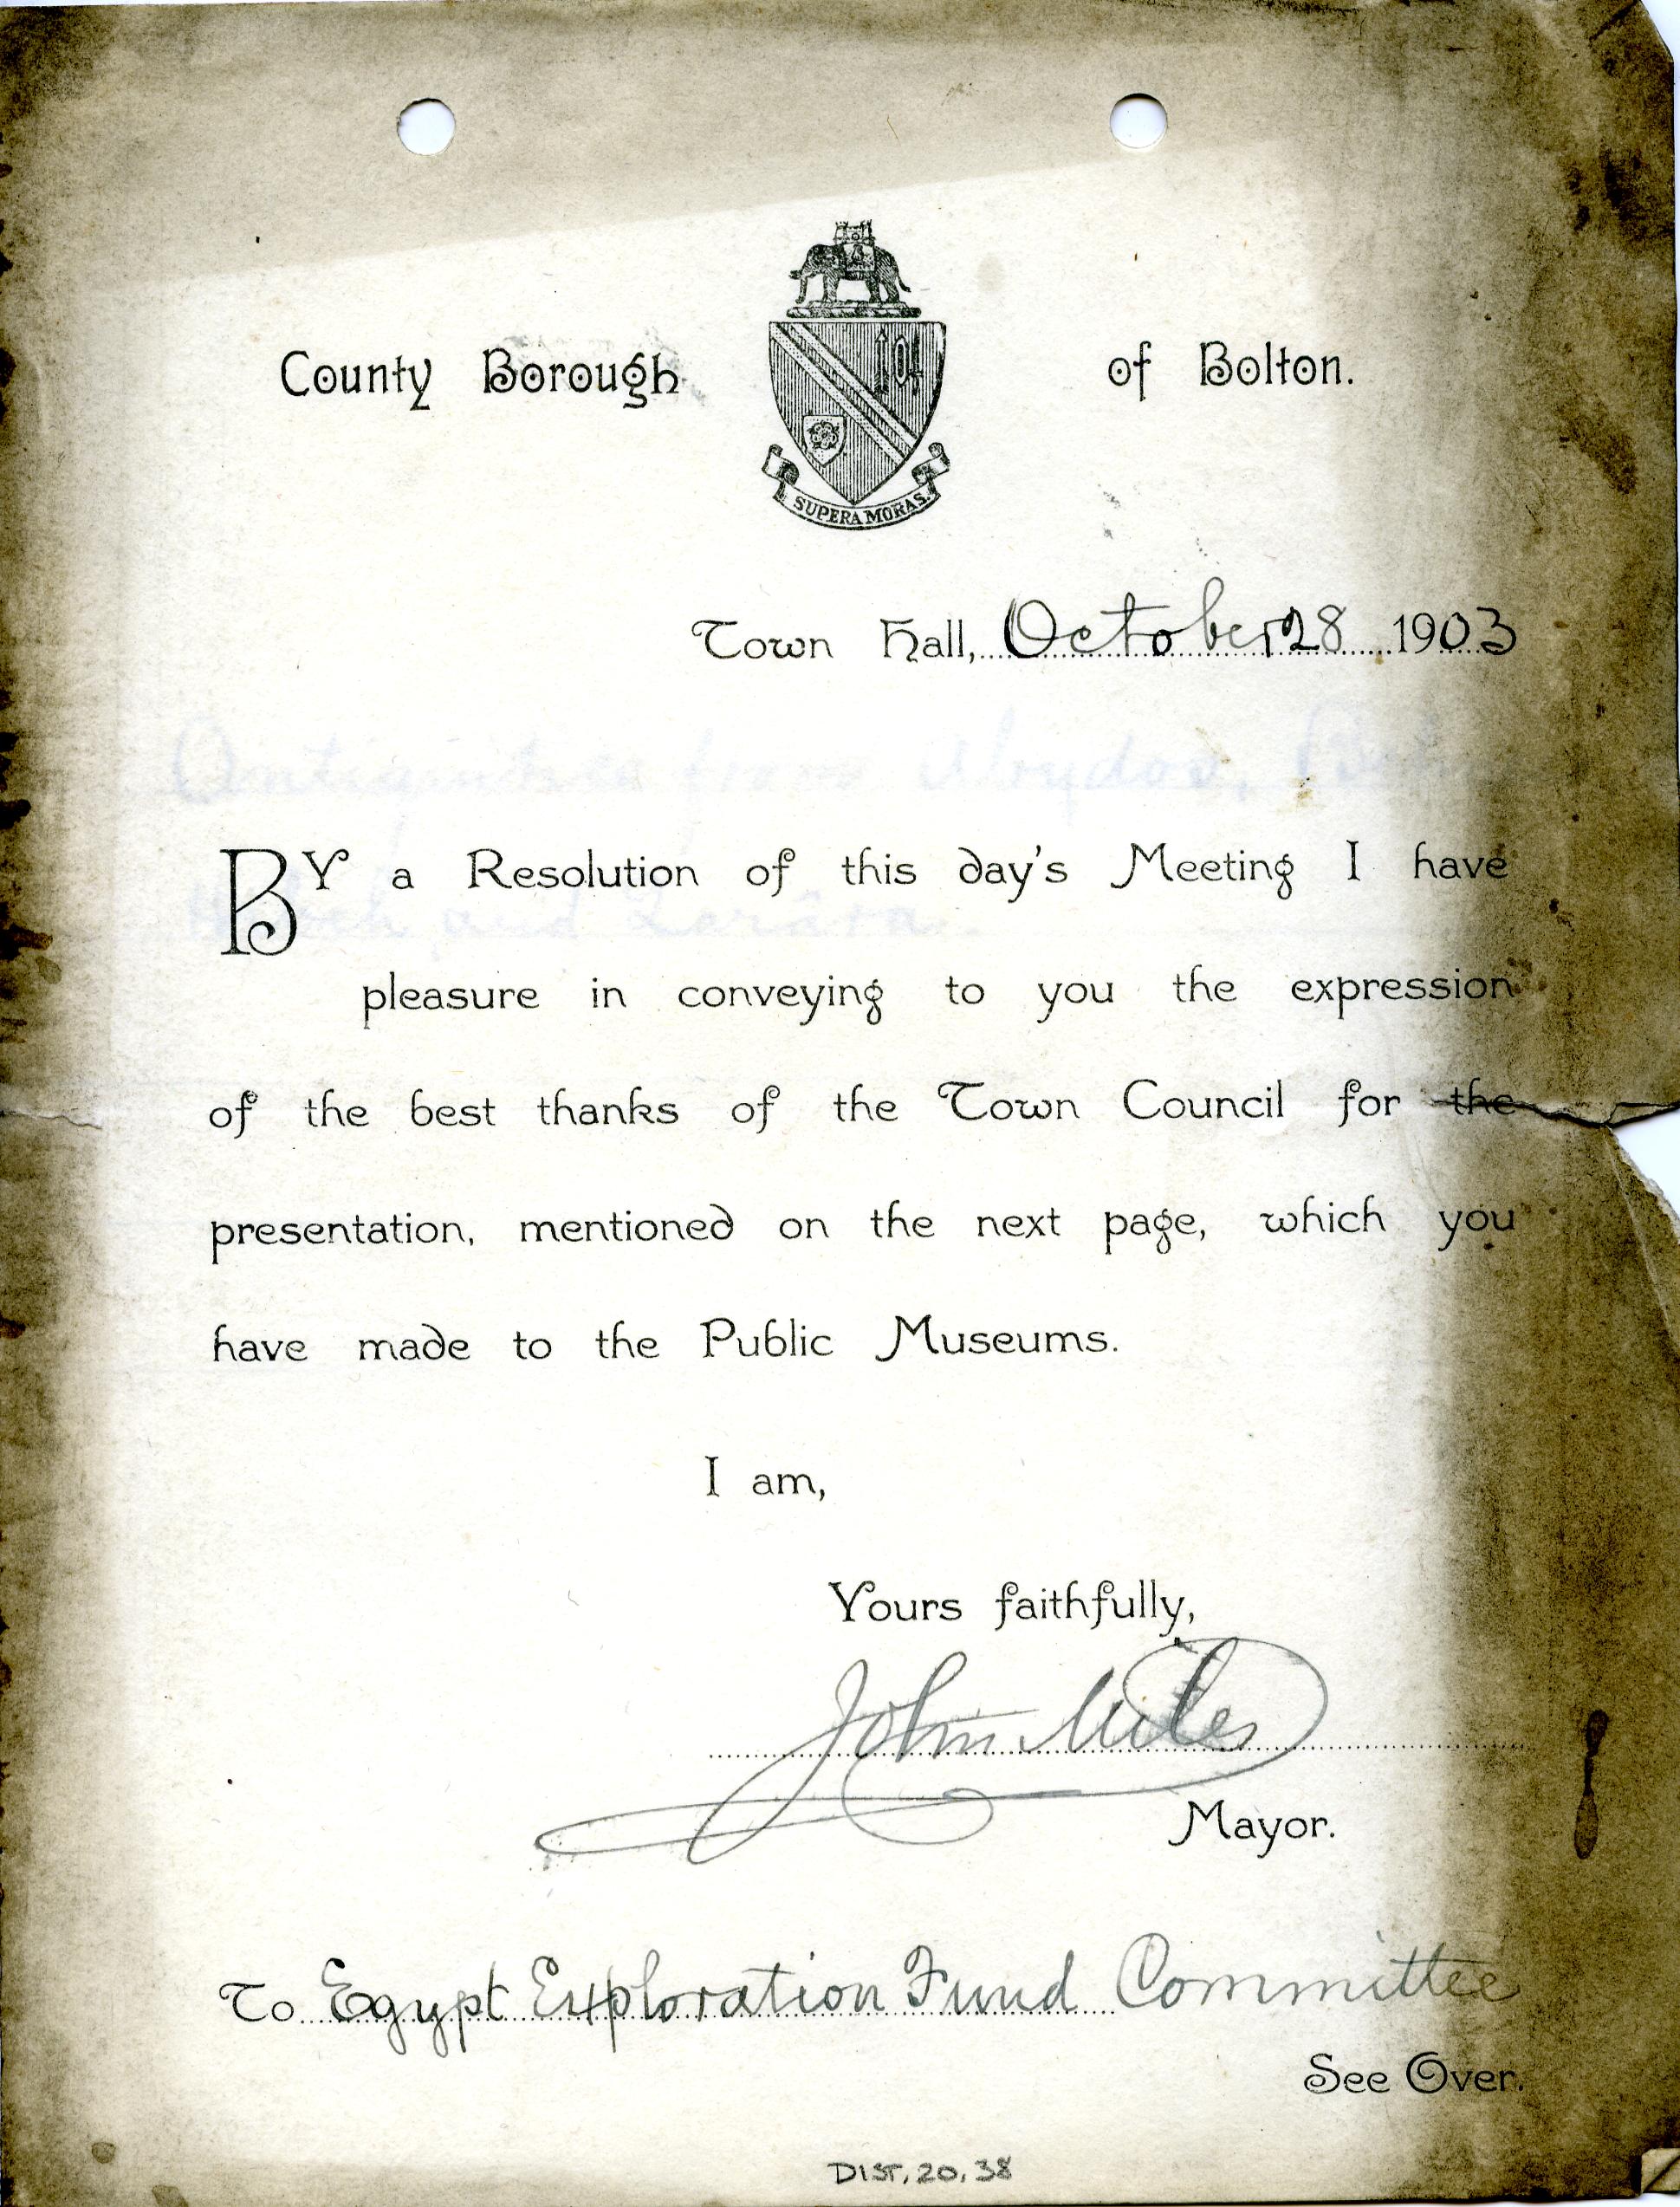 County Borough of Bolton.
SUPERA MORAS.
Town Hall, October 28 1903
Antiquities from Abydos,
and Zarâra
BY a Resolution of this day's Meeting I have
pleasure in conveying to you the expression
of the best thanks of the Town Council for the
presentation, mentioned on the next page, which you
have made to the Public Museums.
I am,
Yours faithfully,
John Miles
Mayor.
To Egypt Exploration Fund Committee
See Over.
DIST. 20. 38